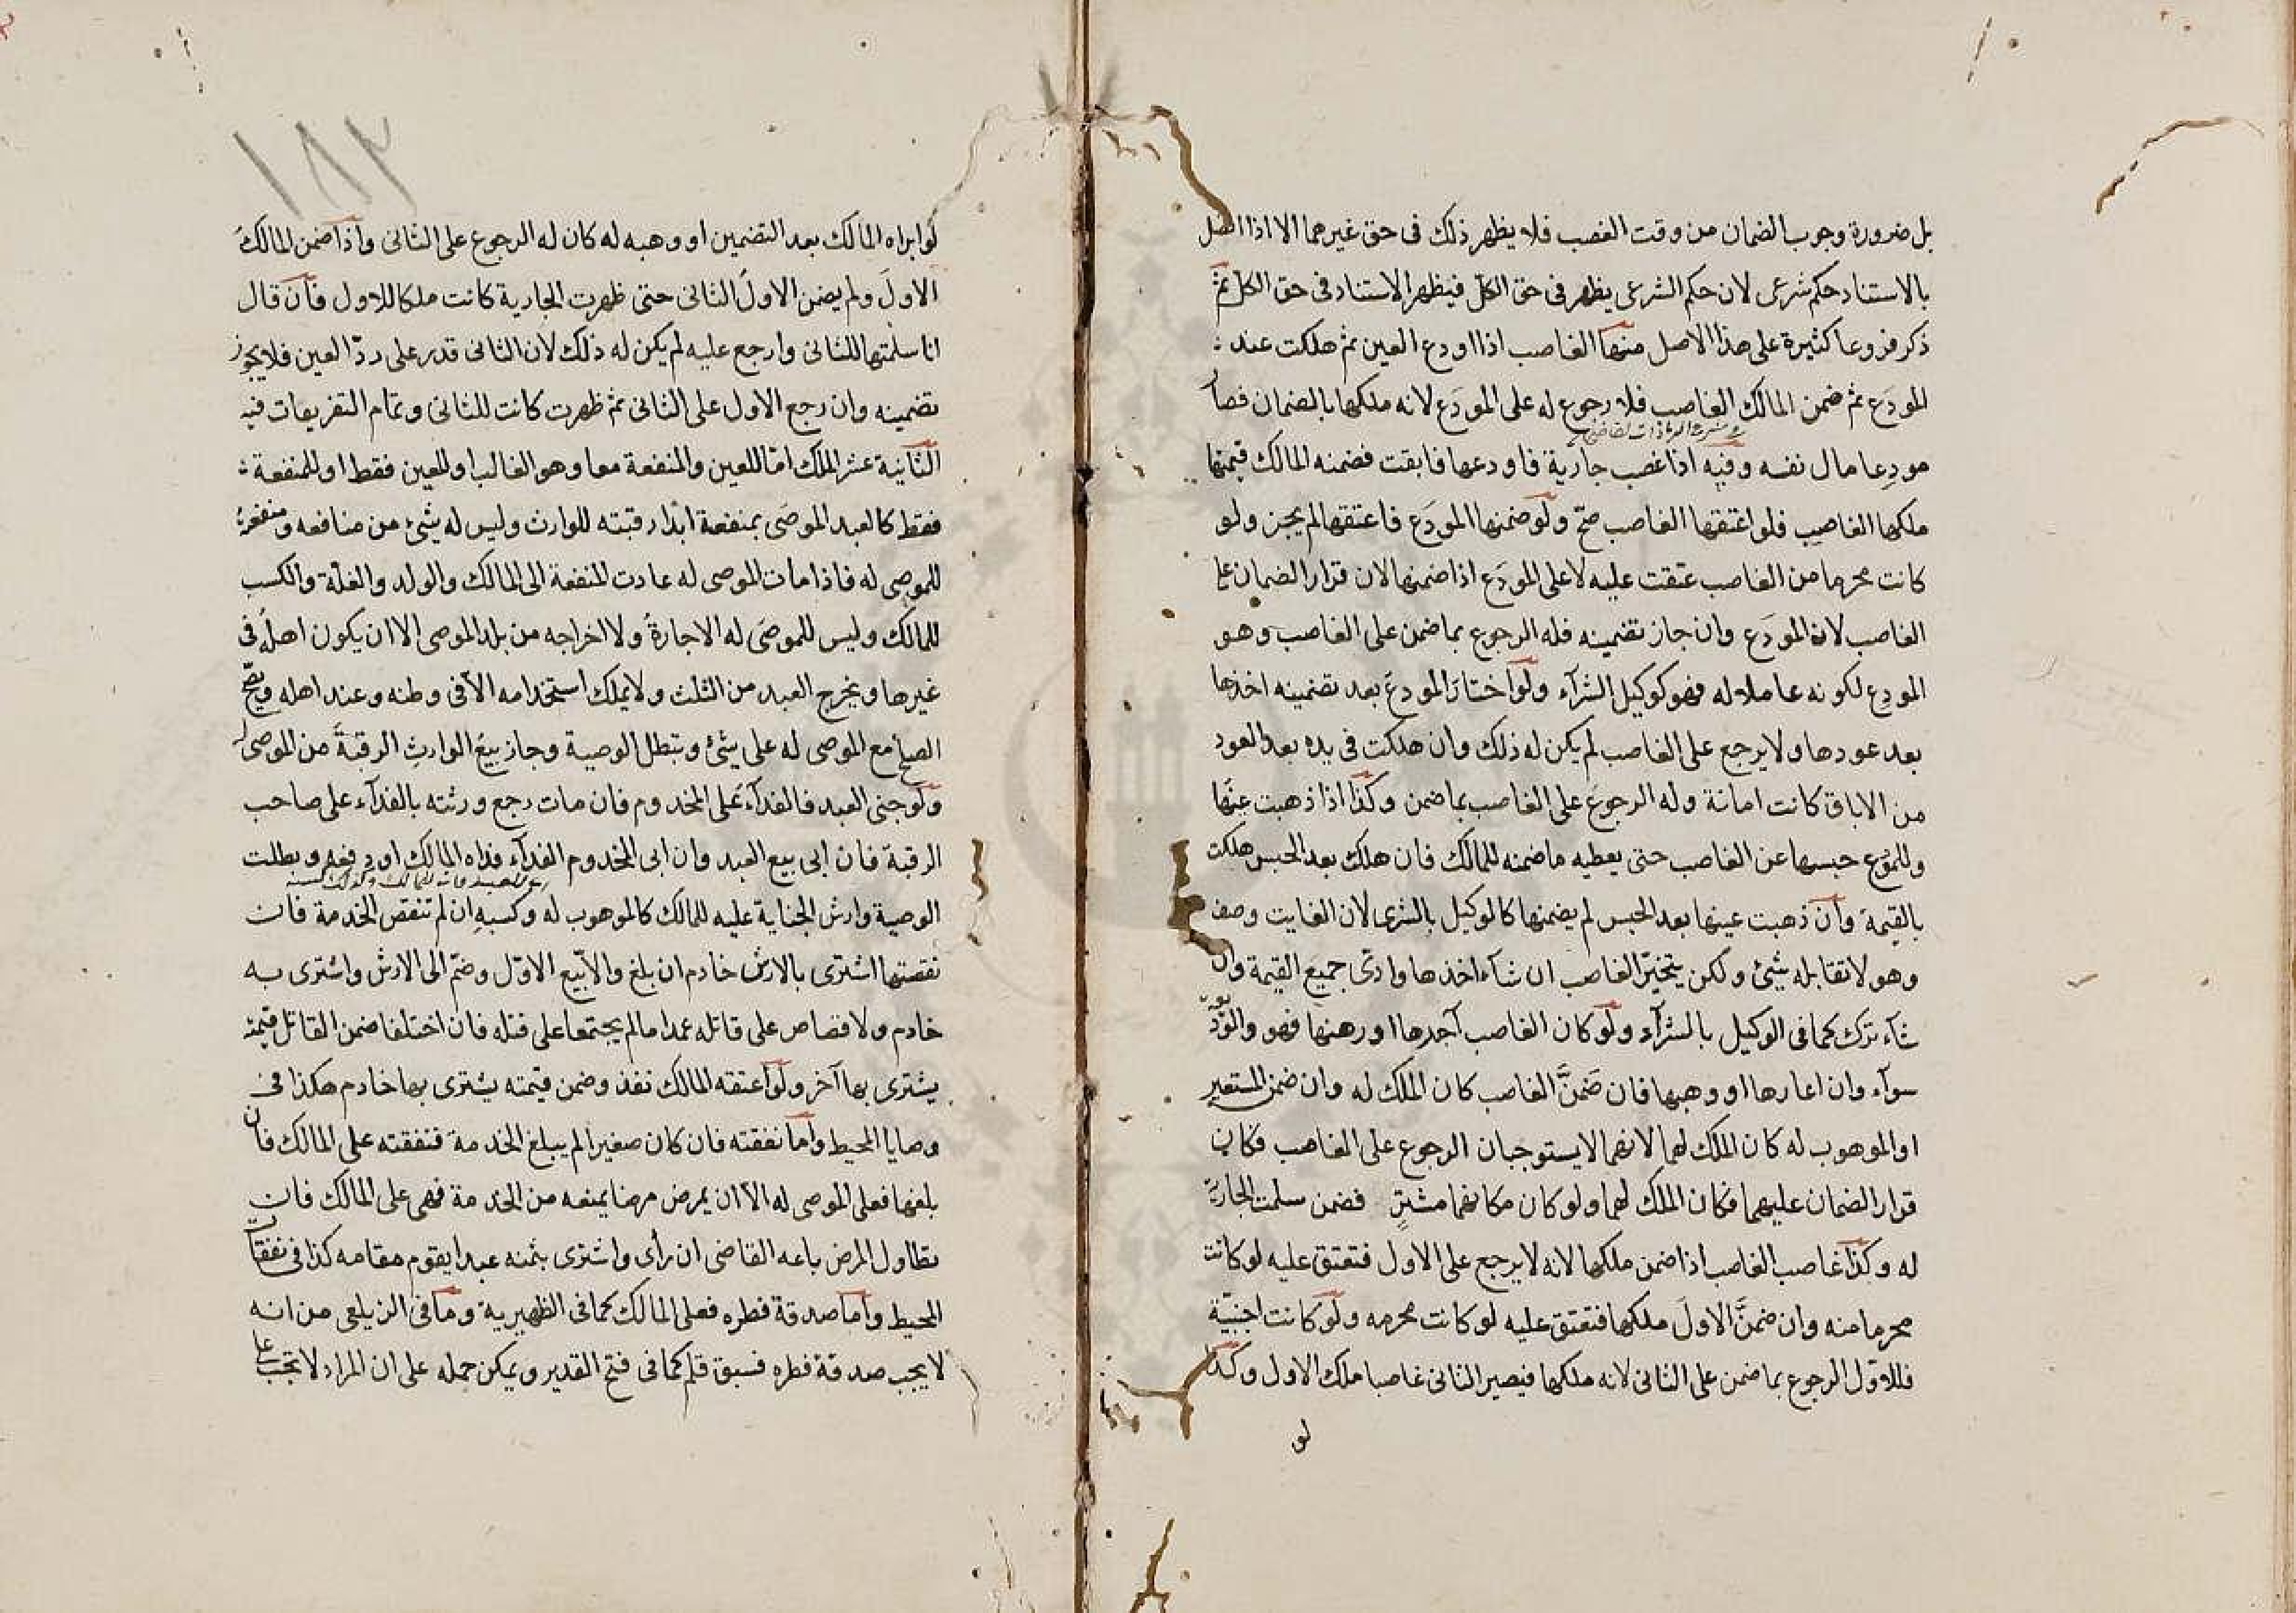 بل ضرورة وجوب الضمان من وقت الغصب فلا يظهر ذلك فى حق غيرهما الا اذا اتصل
بالاستناد حكم شرعى لان حكم الشرعى يظهر فى حق الكل فيظهر الاستناد فى حق الكل ثم
ذكر فروعا كثيرة على هذا الاصل منها الغاصب اذا اودع العين ثم هلكت عند
المودَع ثم ضمن المالك الغاصب فلا رجوع له على المودَع لانه ملكها بالضمان فصار
مودِعا مال نفسه وفيه اذا غصب جارية فاودعها فابقت فضمنه المالك قيمتها
ملكها الغاصب فلو اعتقها الغاصب صح ولو ضمنها المودَع فاعتقها لم يجز ولو
كانت محرما من الغاصب عتقت عليه لا على المودَع اذا ضمنها لان قرار الضمان على
الغاصب لان المودَع وان جاز تضمينه فله الرجوع بما ضمن على الغاصب وهو
المودِع لكونه عاملا له فهو كوكيل الشرآء ولو اختار المودع بعد تضمينه اخذها
بعد عودها ولا يرجع على الغاصب لم يكن له ذلك وان هلكت فى يده بعد العود
من الاباق كانت امانة وله الرجوع على الغاصب بما ضمن وكذا اذا ذهبت عينها
وللمودع حبسها عن الغاصب حتى يعطيه ما ضمنه للمالك فان هلك بعد الحبس هلكت
بالقيمة وان ذهبت عينها بعد الحبس لم يضمنها كالوكيل بالشرى لان الفايت وصف
وهو لا تقابله شئ ولكن يتخيّر الغاصب ان شآء اخذها وادّى جميع القيمة وان
شآء ترك كما فى الوكيل بالشرآء ولو كان الغاصب آجرها او رهنها فهو والوديعة
سوآء وان اعارها او وهبها فان ضَمنَّ الغاصب كان الملك له وان ضمن المستعير
او الموهوب له كان الملك لهما لانهما لا يستوجبان الرجوع على الغاصب فكان
قرار الضمان عليهما فكان الملك لهما ولو كان مكانهما مشترٍ فضمن سلمت الجارية
له وكذا غاصب الغاصب اذا ضمن ملكها لانه لا يرجع على الاول فتعتق عليه لو كانت
محرما منه وان ضمنَّ الاولَ ملكها فتعتق عليه لو كانت محرمه ولو كانت اجنبيّة
فللاوّل الرجوع بما ضمن على الثانى لانه ملكها فيصير الثانى غاصبا ملك الاول وكذا
لو
١٨٢
لو ابراه المالك بعد التضمين او وهبه له كان له الرجوع على الثانى واذا ضمن المالكَ
الاولَ ولم يضمن الاولُ الثانى حتى ظهرت الجارية كانت ملكا للاول فان قال
انا سلمتها للثانى وارجع عليه لم يكن له ذلك لان الثانى قدر على ردّ العين فلا يجوز
تضمينه وان رجع الاول على الثانى ثم ظهرت كانت للثانى وتمام التفريعات فيه
الثانية عشر الملك امّا للعين والمنفعة معا وهو الغالب او للعين فقط او للمنفعة
فقط كالعبد الموصَى بمنفعة ابدًا رقبته للوارث وليس له شئ من منافعه ومنفعته
للموصى له فاذا مات الموصى له عادت المنفعة الى المالك والولد والغلّة والكسب
للمالك وليس للموصَى له الاجارةُ ولا اخراجه من بلد الموصى الا ان يكون اهلُه فى
غيرها ويخرج العبد من الثلث ولا يملك استخدامه الّا فى وطنه وعند اهله ويصحّ
الصلح مع الموصى له على شئ وتبطل الوصية وجاز بيعَ الوارثِ الرقبةَ من الموصى له
ولو جنى العبد فالفدآء على المخدوم فان مات رجع ورثته بالفدآء على صاحب
الرقبة فان ابى بيع العبد وان ابى المخدوم الفدآء فداه المالك او دفعه وبطلت
الوصية وارش الجناية عليه للمالك كالموهوب له وكسبه ان لم تنقص الخدمة فان
نقصتها اشترى بالارش خادم ان بلغ والّا بيع الاوّل وضمّ الى الارش واشترى به
خادم ولا قصاص على قاتله عمدا مالم يجتمعا على قتله فان اختلفا ضمن القاتل قيمته
يشترى بها آخر ولو اعتقه المالك نفذ وضمن قيمته يشترى بها خادم هكذا فى
وصايا المحيط واما نفقته فان كان صغيرا لم يبلغ الخدمة فنفقته على المالك فان
بلغها فعلى الموصى له الّا ان يمرض مرضا يمنعه من الخدمة فهى على المالك فان
تطاول المرض باعه القاضى ان رأى واشترى بثمنه عبدا يقوم مقامه كذا فى نفقات
المحيط واما صدقة فطره فعلى المالك كما فى الظهيرية وما فى الزيلعى من انه
لا يجب صدقة فطره فسبق قلم كما فى فتح القدير ويمكن حمله على ان المراد لا تجب على